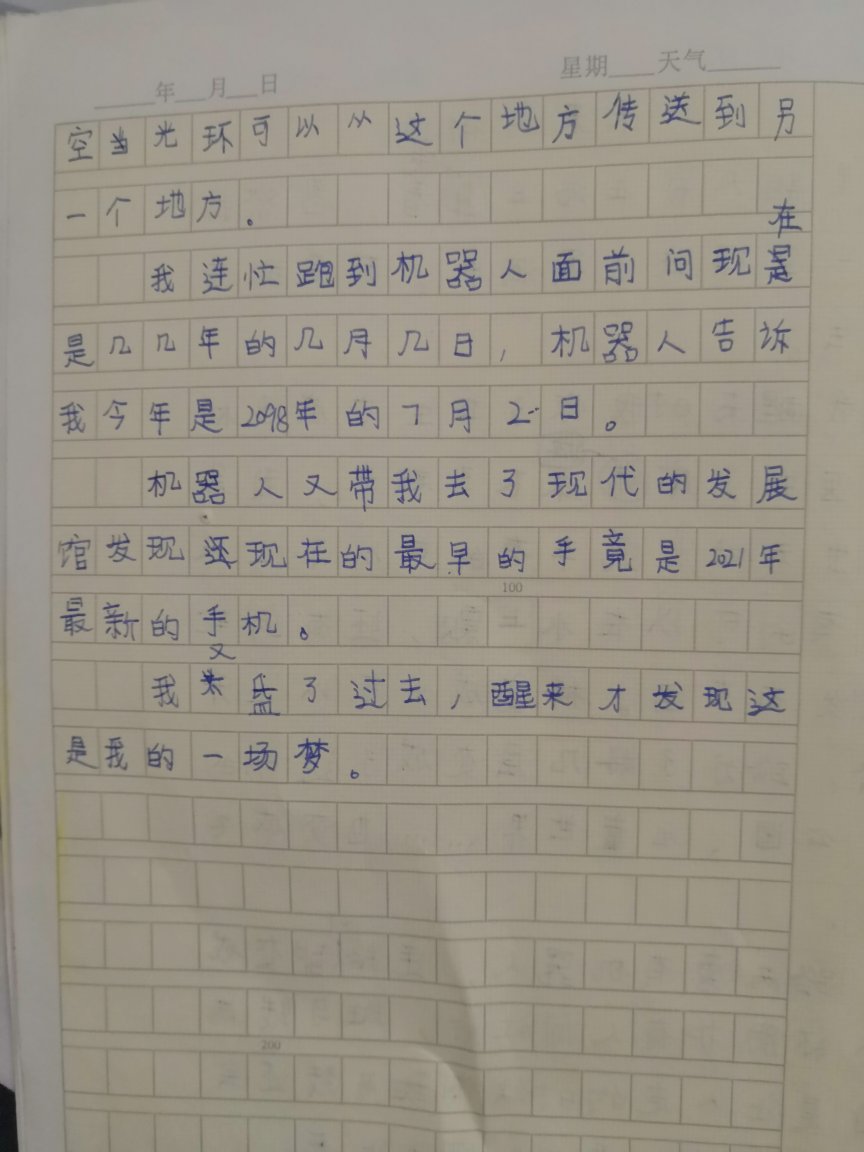 ____年___月___日 星期____天气______
空当光环可以从这个地方传送到另
一个地方。
在
我连忙跑到机器人面前问现是
是几几年的几月几日，机器人告诉
我今年是2098年的7月2日。
机器人又带我去了现代的发展
馆发现还现在的最早的手竟是2021年
100
最新的手机。
又
我 了过去，醒来才发现这
是我的一场梦。
200